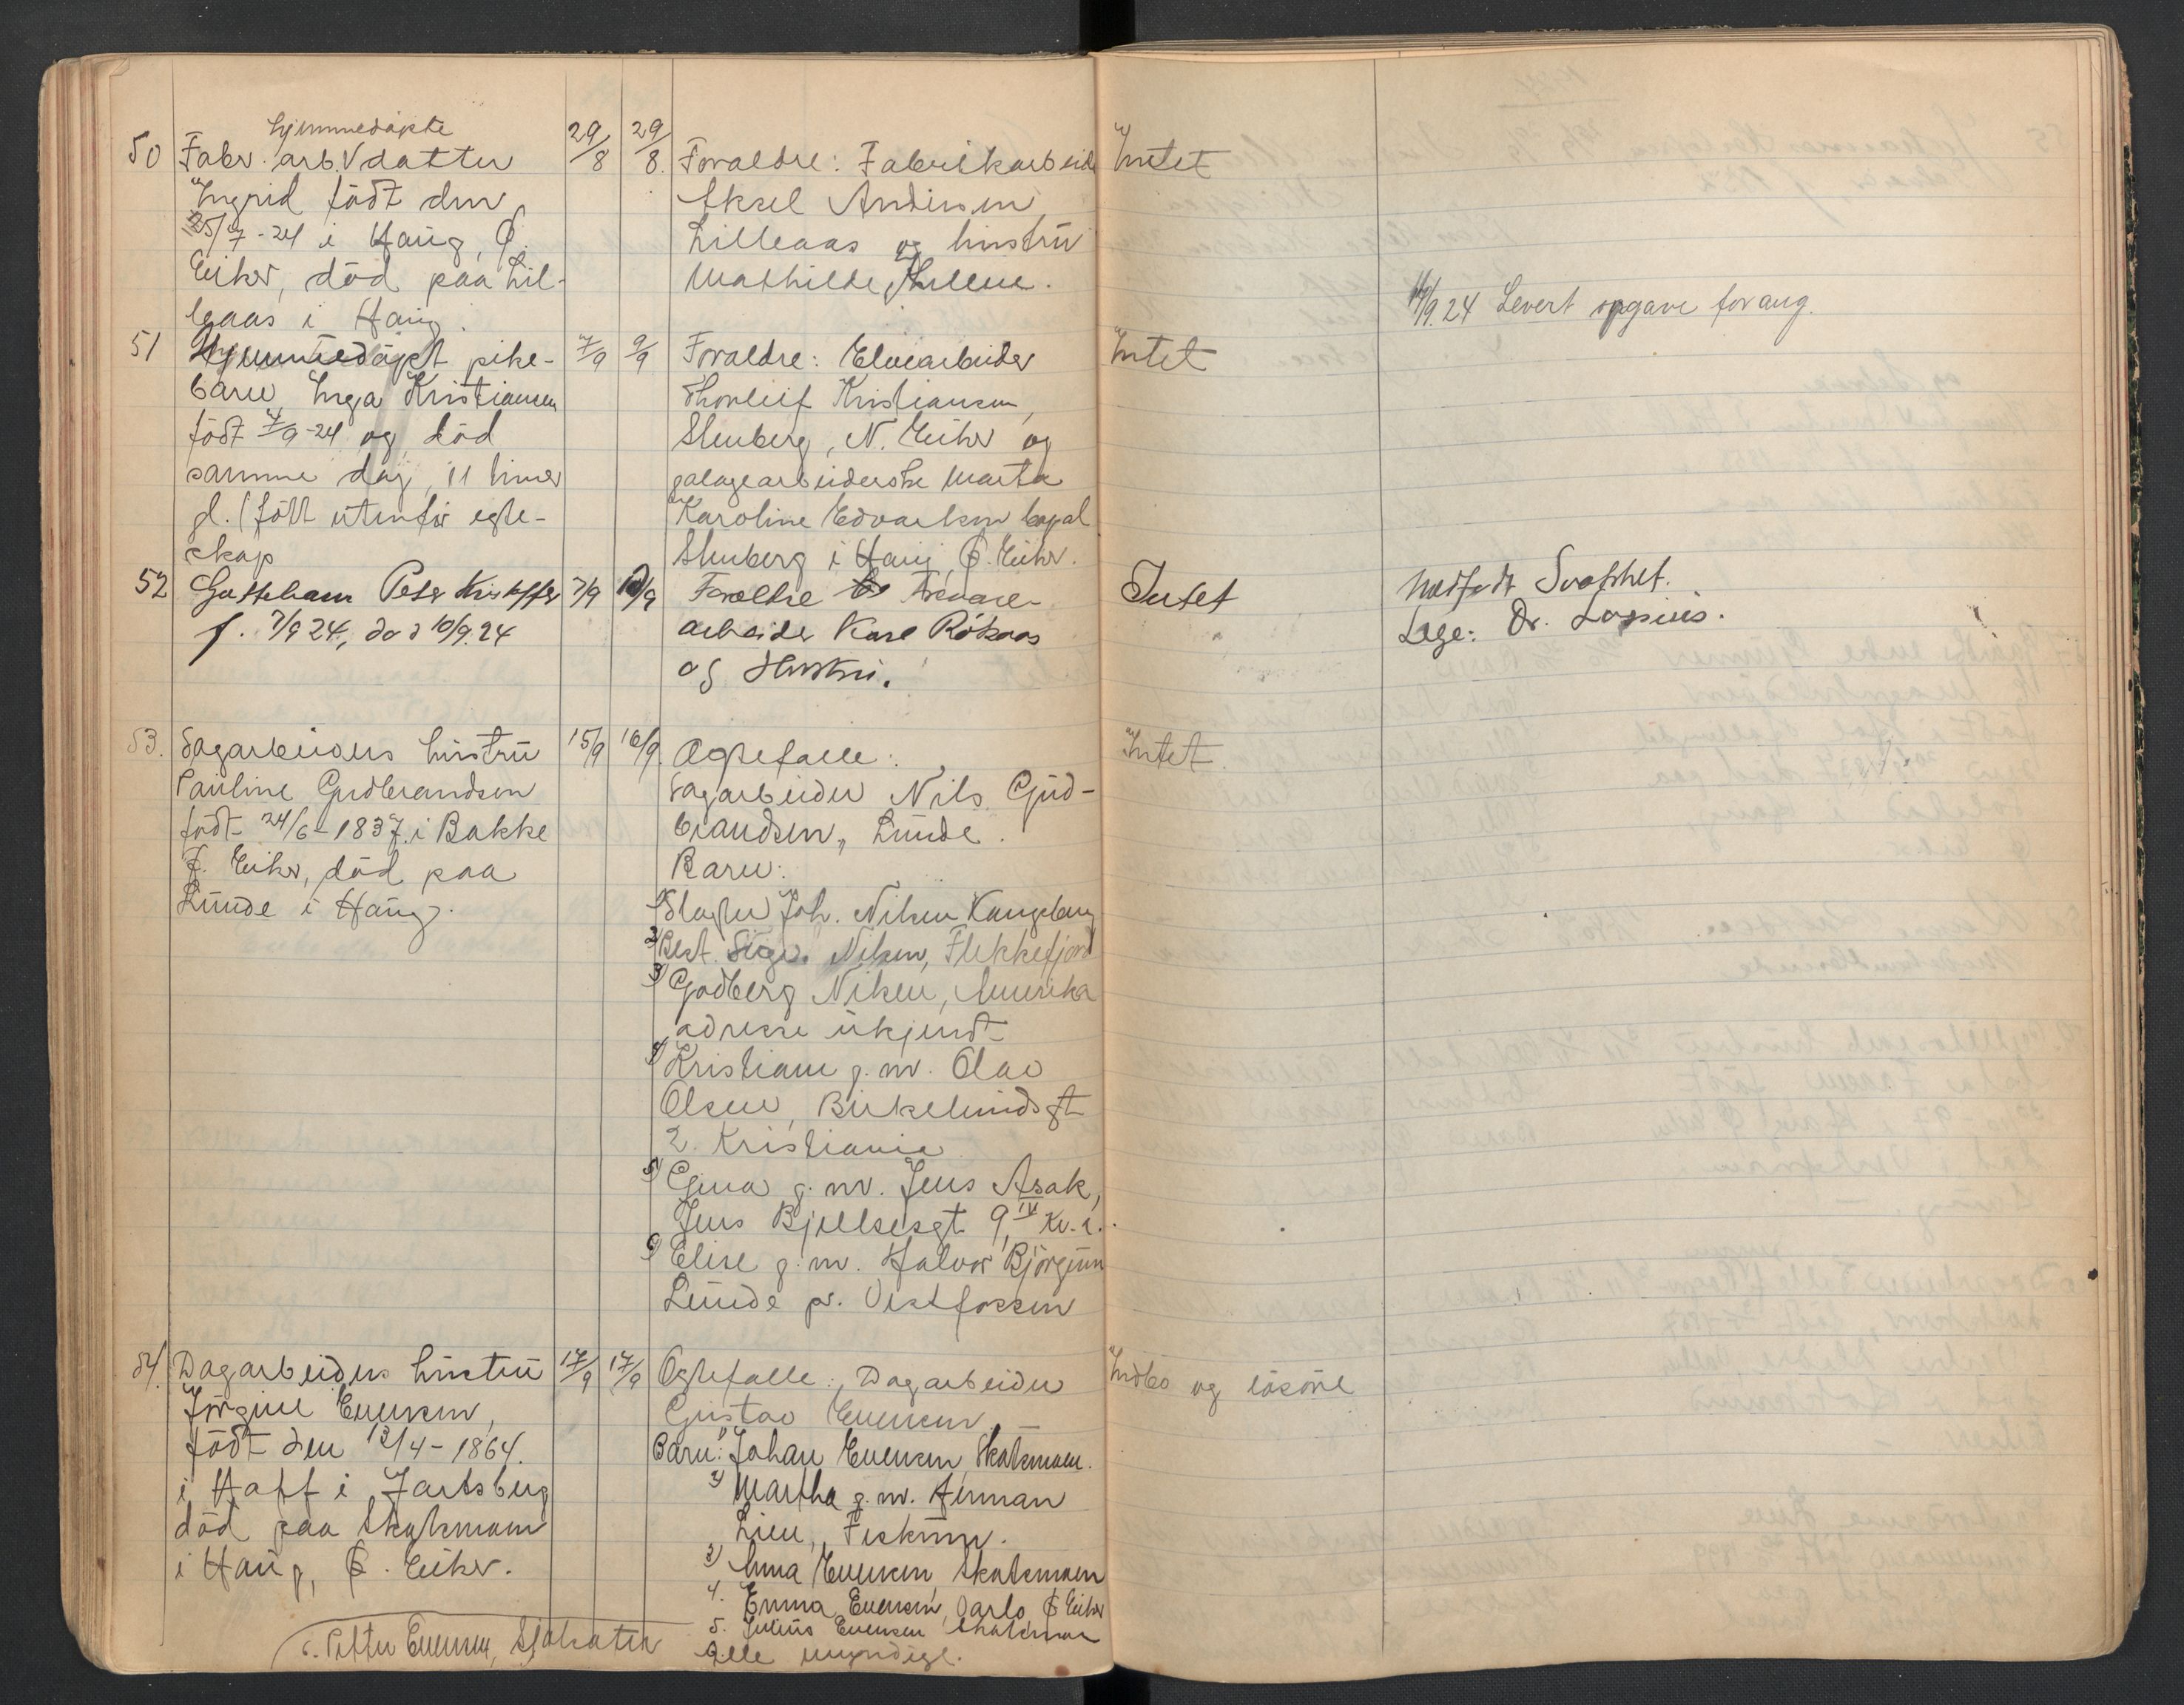 hjemmedøpte
50 Fabr. arb. datter 29/8 29/8. Foraldre: Fabrikarbeide Intet
Ingrid født den Aksel Andersen,
25/7-24 i Haug, Ø. Lilleaas og hustru
Eiker, død paa Lil- Mathilde
leaas i Haug.
11/9.24 Levert opgave for aug.
51 Hjemmedøpt pike- 7/9 9/9 Foraldre: Elvearbeider Intet
barn Inga Kristiansen Thorleif Kristiansen,
født 7/9-24 og død Stenberg, N. Eiker og
samme dag, 11 timer Marta
gl. (født utenfor egte- Karoline
skap Stenberg i Haug, Ø. Eiker.
52 Guttebarn Peter 7/9 10/9 Foreldre Intet Medfødt Svakhet.
f. 7/9 24, død 10/9.24 arbeider Karl Røkaas Lege: Dr.
og Hustru.
53. Sagarbeiders hustru 15/9 16/9. Egtefælle: Intet.
Pauline Gudbrandsen Sagarbeider Nils Gud-
født 24/6-1837 i Bakke brandsen, Lunde.
Ø. Eiker, død paa Barn:
Lunde i Haug. 1) Joh. Nilsen Kongsberg
2) Best. Nilsen, Flekkefjord
3) Godberg Nilsen, Amerika
adresse ukjendt
4) Kristiane g. m. Olav
Olsen, Birkelundsgt
2. Kristiania
5) Gina g. m. Jens Asak,
Jens Bjelkesgt 9, IV Kr.a.
6) Elise g. m. Halvor
Lunde pr. Vestfossen
54. Dagarbeiders hustru 17/9 17/9 Egtefælle: Dagarbeider Indbo og løsøre
Jørgine Evensen, Gustav Evensen.
født den 12/4-1864. Barn: 1) Johan Evensen, Skotsmoen.
i Hoff i Jarlsberg 2) Martha g. m. Herman
død paa Skotsmoen Lien, Fiskum.
i Haug, Ø. Eiker. 3) Anna Evensen, Skotsmoen
4. Emma Evensen, Ø. Eiker
5. Julius Evensen Skotsmoen
6. Petter Evensen, Alle myndige.